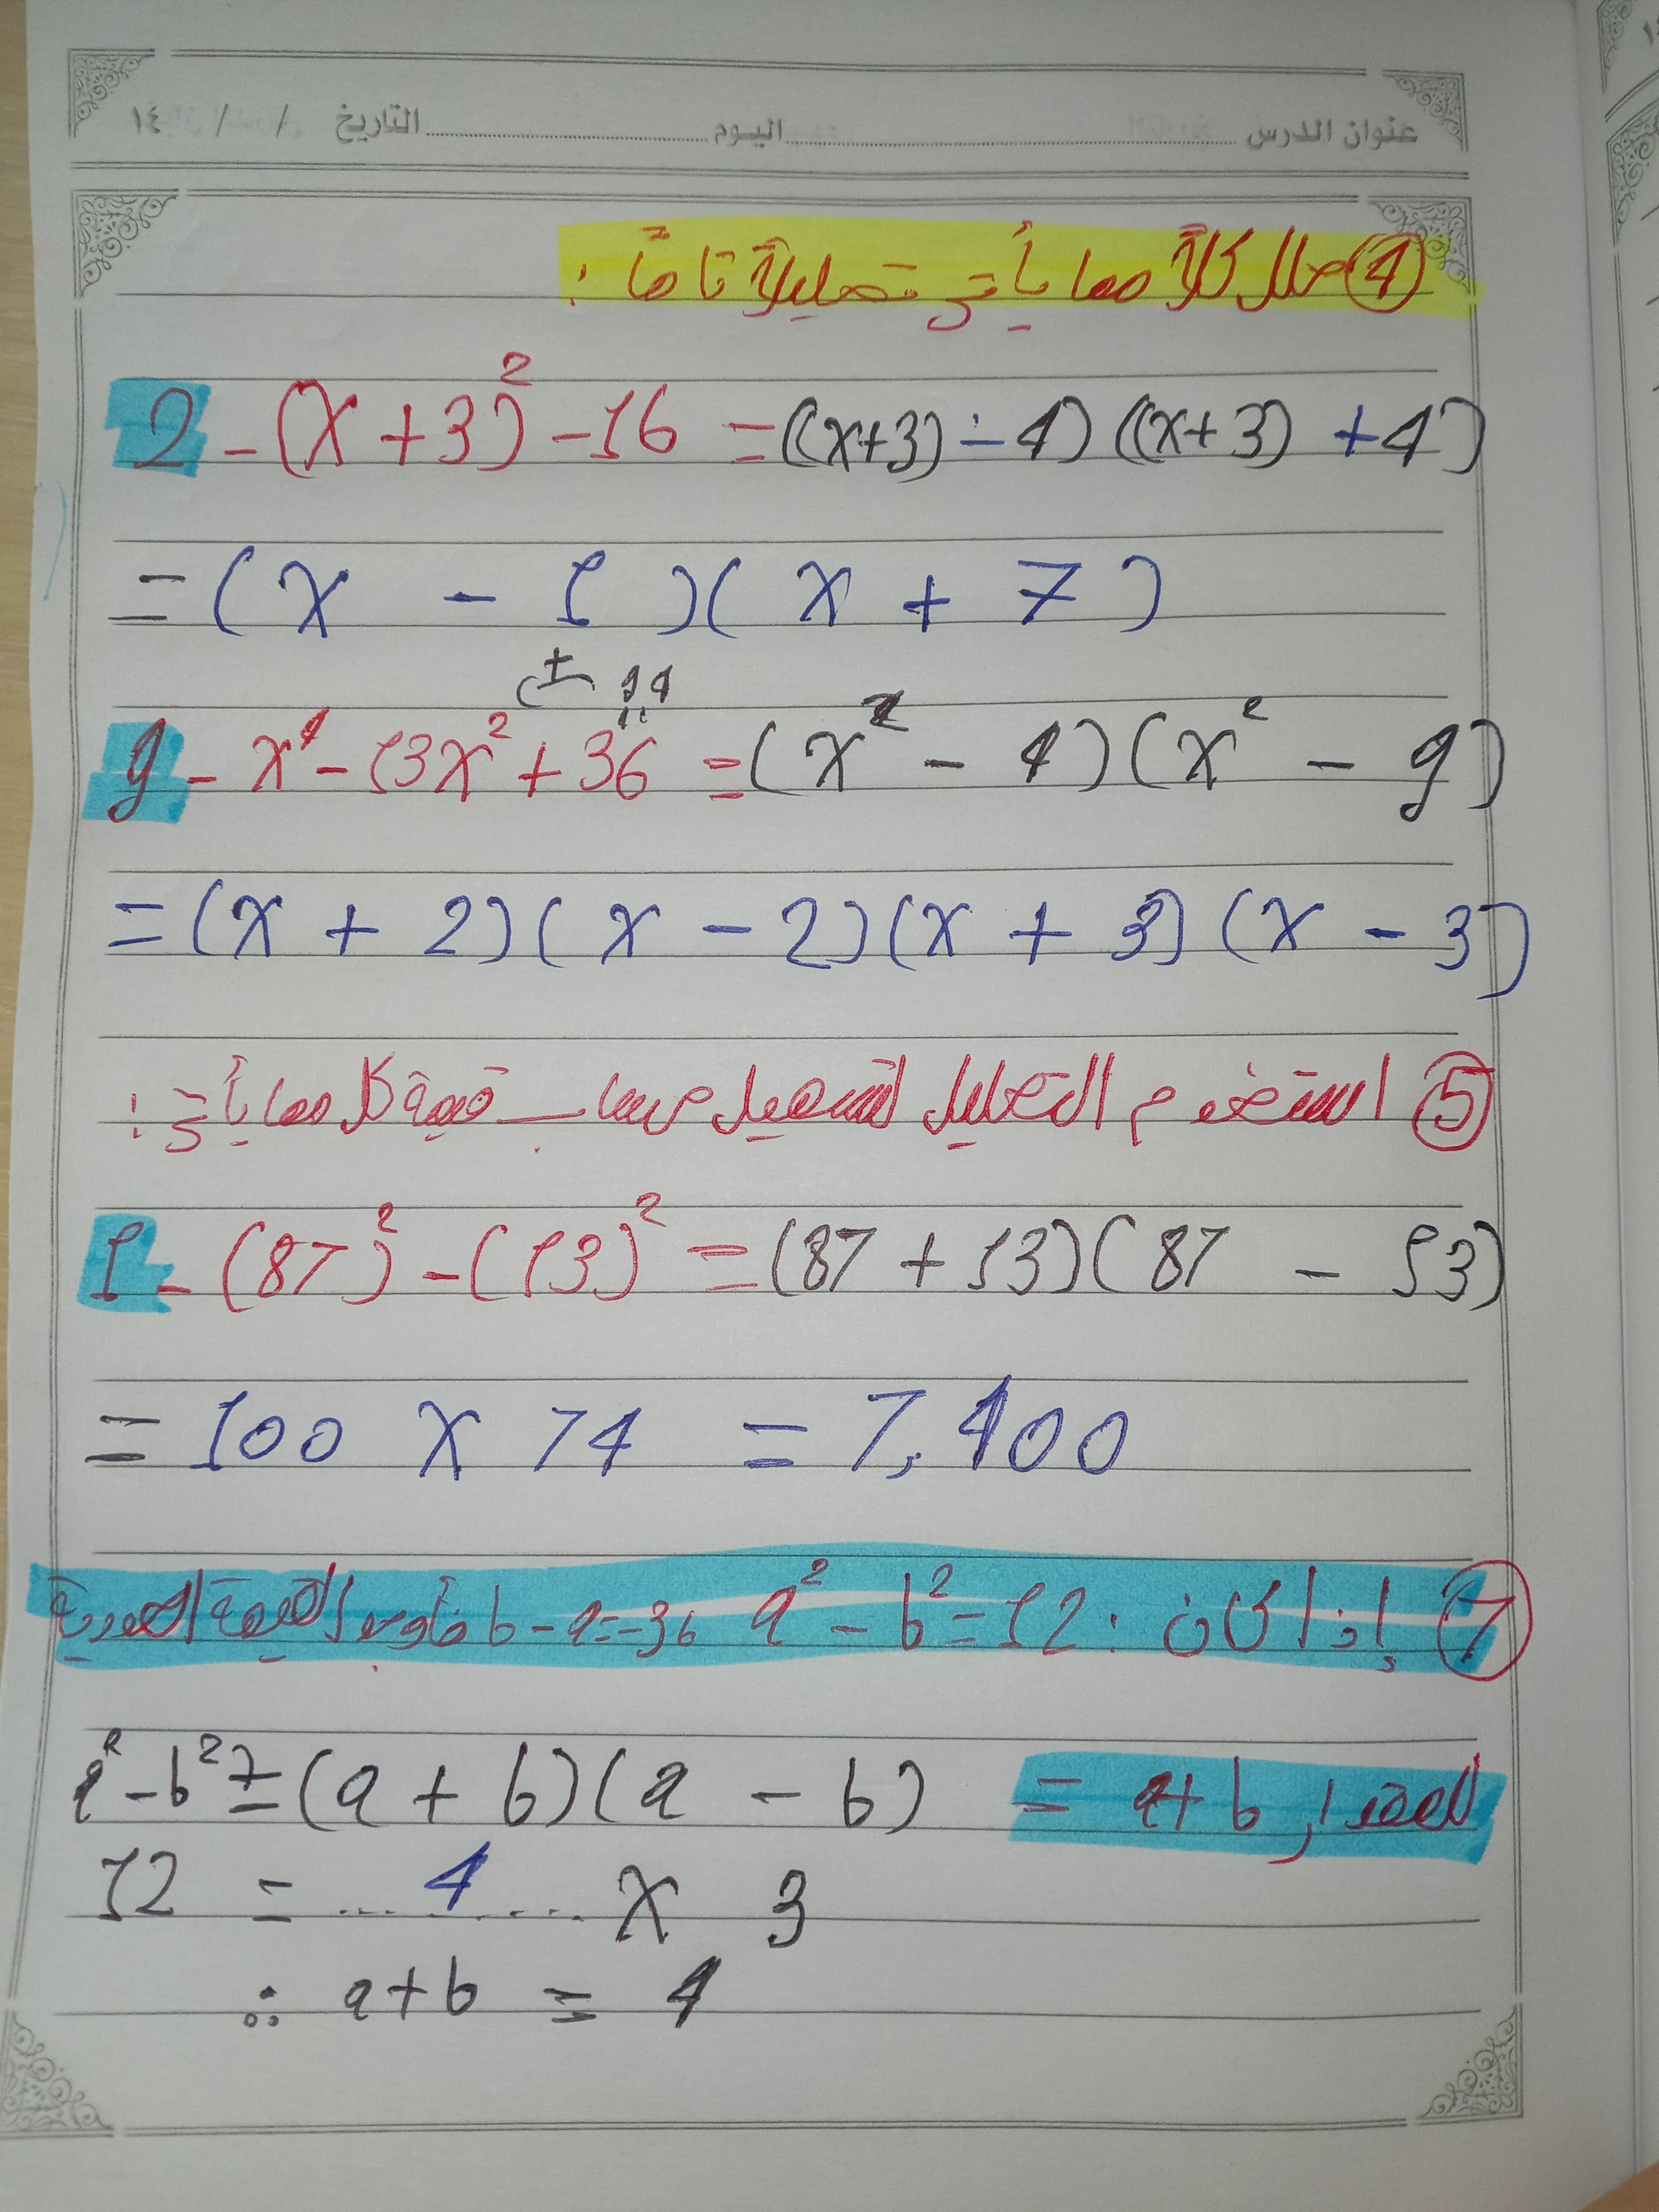 عنوان الدرس اليوم التاريخ / / ١٤
④ حلل كلاً مما يأتي تحليلاً تاماً :
2 - (x + 3)² - 16 = ((x+3) - 4) ((x+3) + 4)
= (x - 1)(x + 7)
9 - x⁴ - 13x² + 36 = (x² - 4)(x² - 9)
= (x + 2)(x - 2)(x + 3)(x - 3)
⑤ استخدم التحليل لتسهيل حساب قيمة كل مما يأتي :
1 - (87)² - (13)² = (87 + 13)(87 - 13)
= 100 x 74 = 7,400
⑦ إذا كان : a² - b² = 12 b - a = -3 فأوجد القيمة العددية
للمقدار a + b =
a² - b² = (a + b)(a - b)
12 = ... 4 ... x 3
∴ a + b = 4